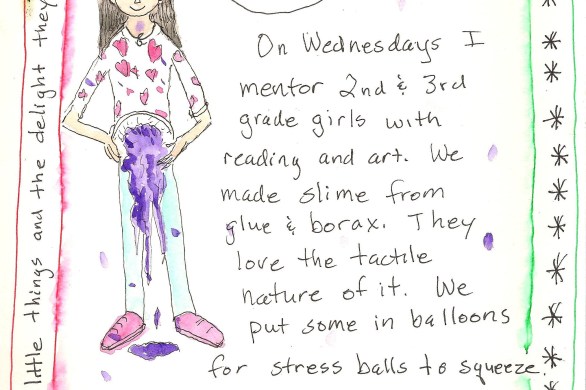 little things and the delight they
On Wednesdays I
mentor 2nd & 3rd
grade girls with
reading and art. We
made slime from
glue & borax. They
love the tactile
nature of it. We
put some in balloons
for stress balls to squeeze.